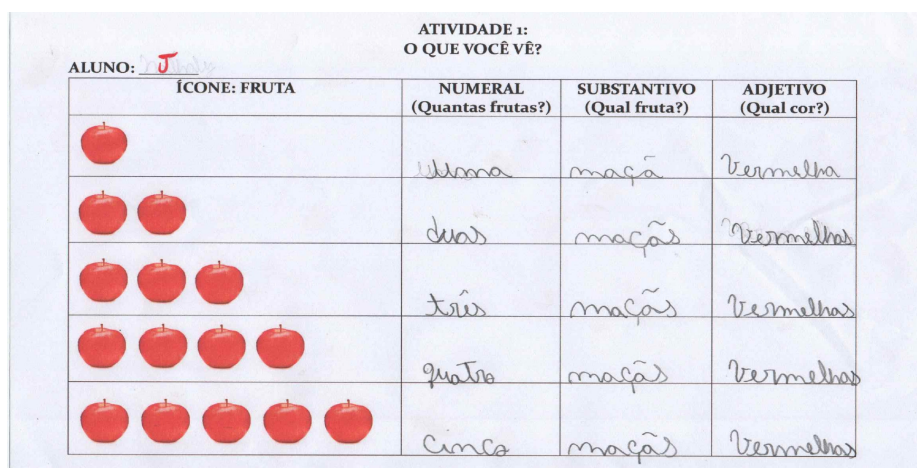 ATIVIDADE 1:
O QUE VOCÊ VÊ?
ALUNO: J
ÍCONE: FRUTA NUMERAL SUBSTANTIVO ADJETIVO
(Quantas frutas?) (Qual fruta?) (Qual cor?)
uma maçã Vermelha
duas maçãs Vermelhas
três maçãs Vermelhas
quatro maçãs Vermelhas
Cinco maçãs Vermelhas